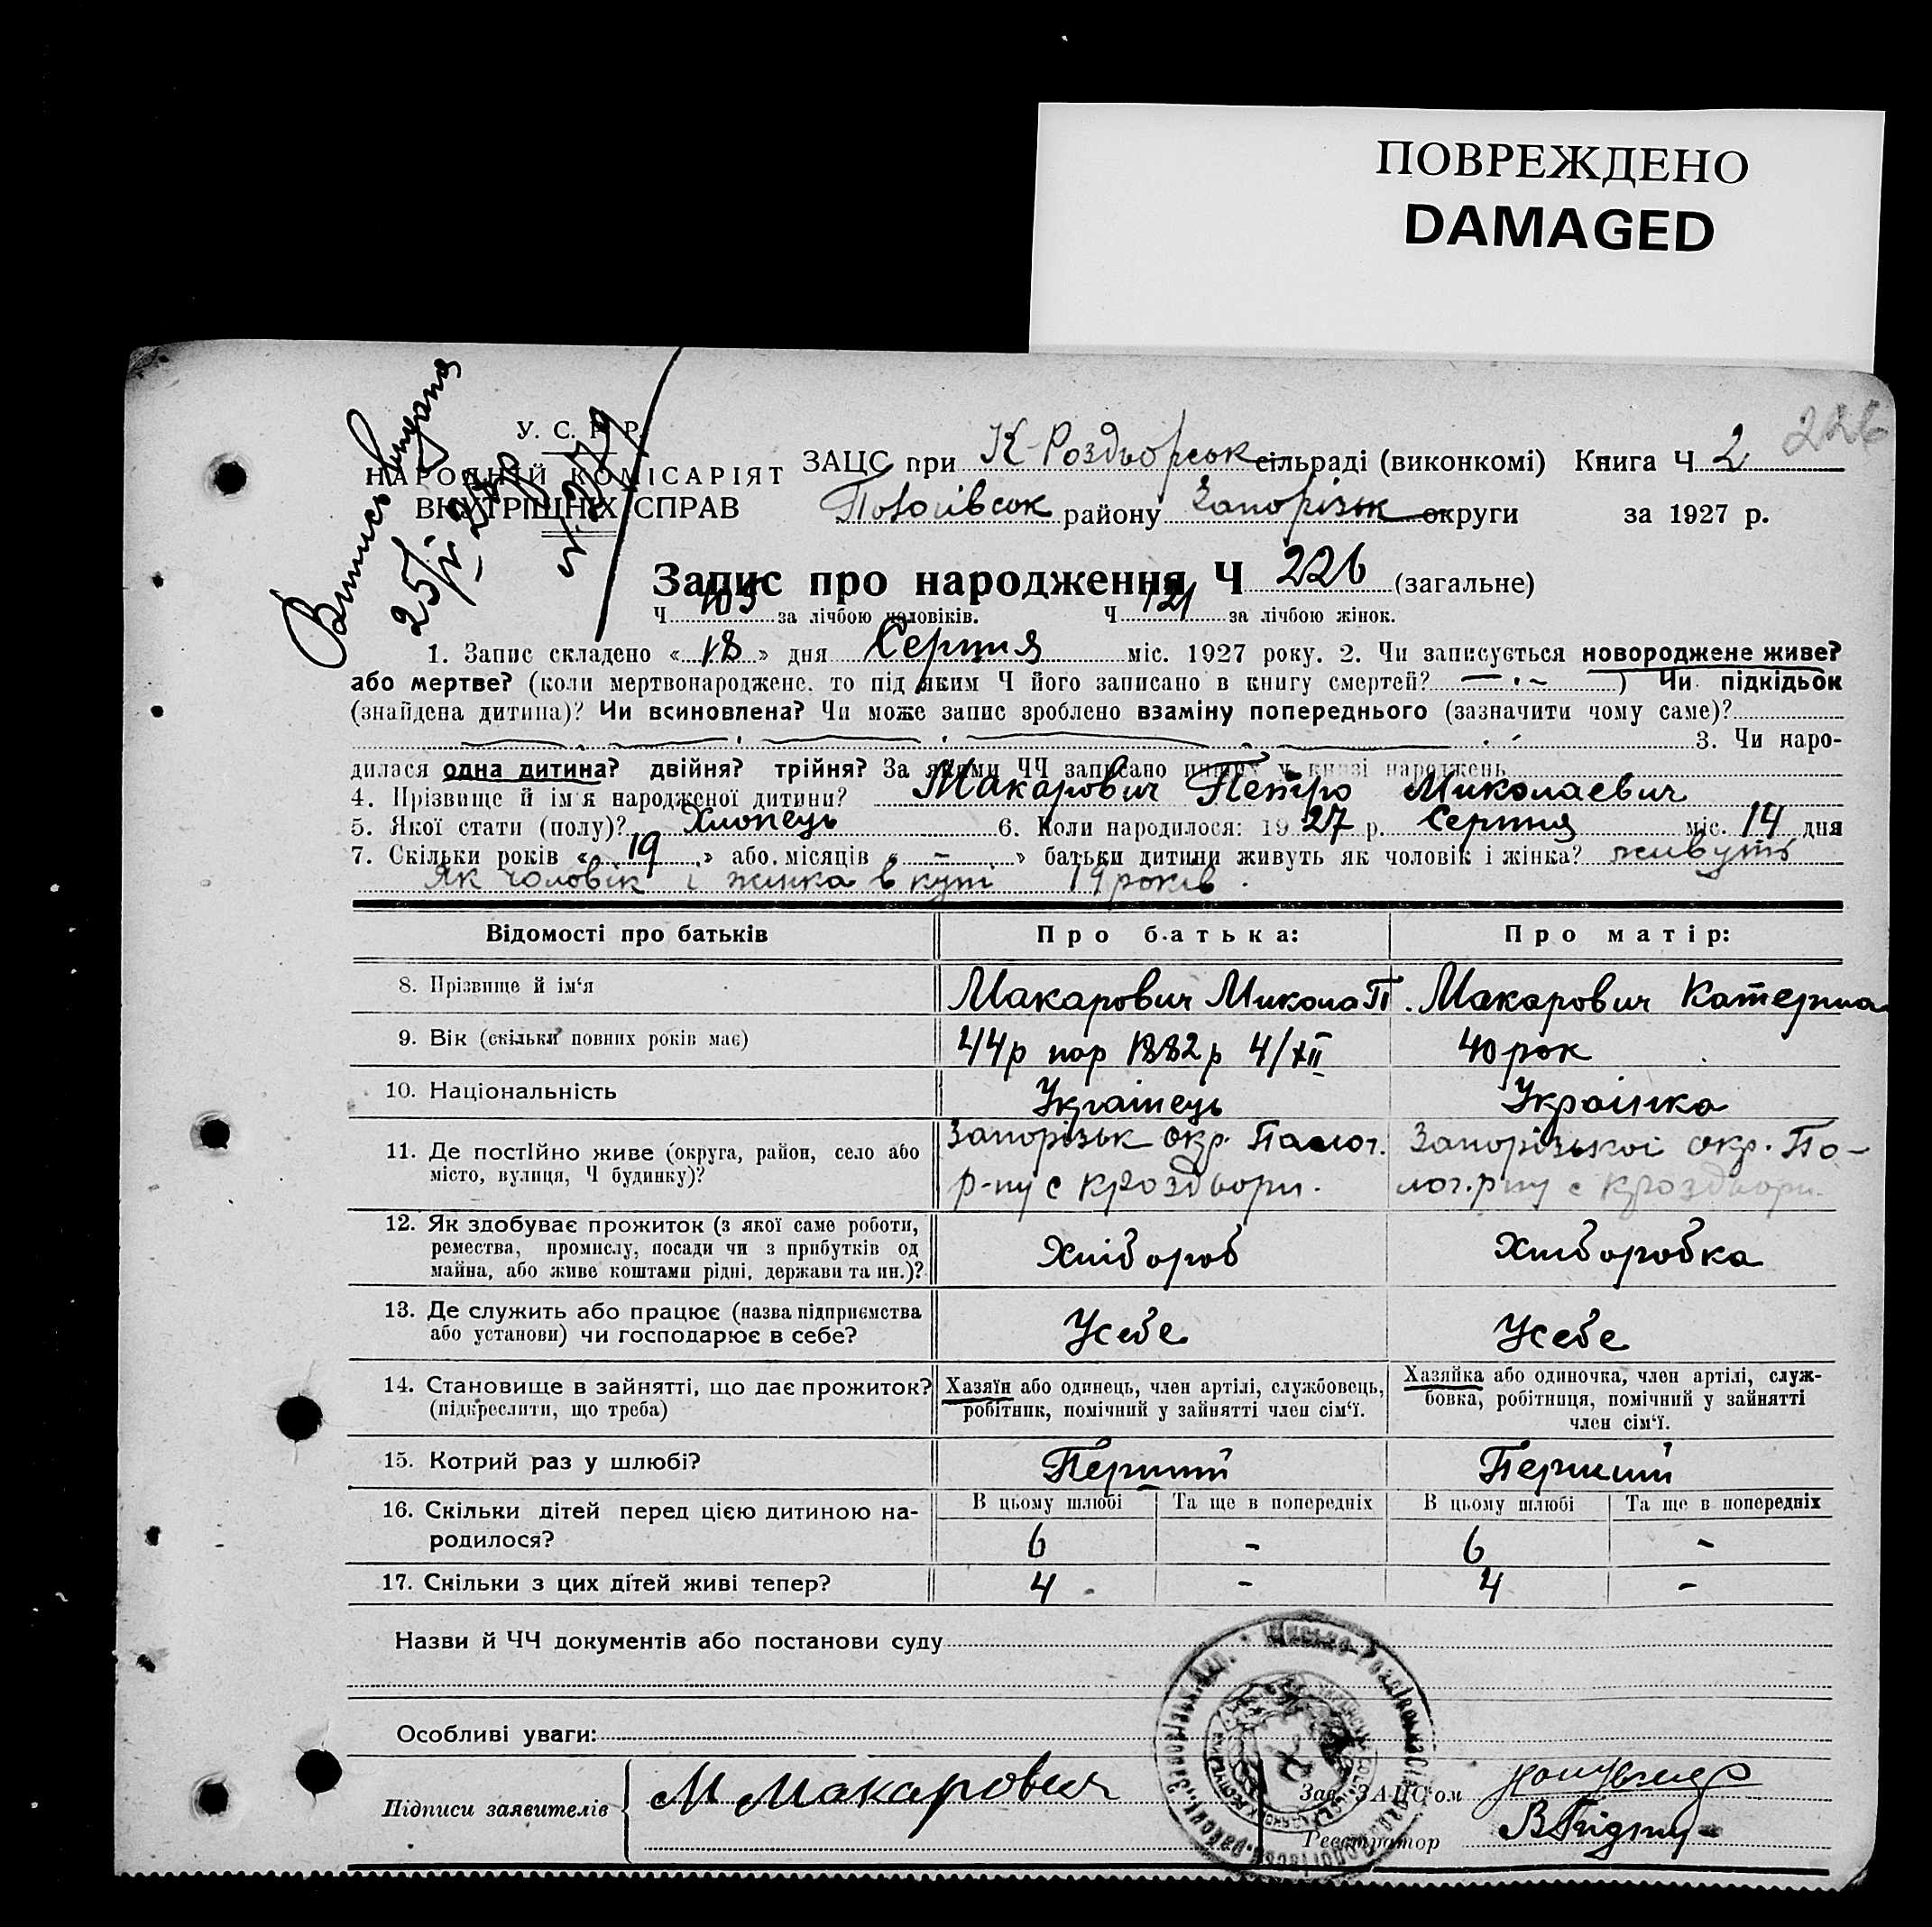 ПОВРЕЖДЕНО
DAMAGED
226
Випись видана
У. С. Р. Р.
НАРОДНІЙ КОМІСАРІЯТ
ВНУТРІШНІХ СПРАВ
ЗАЦС при К-Роздворськ сільраді (виконкомі) Книга Ч 2
району Запорізьк округи за 1927 р.
Запис про народження Ч 226 (загальне)
Ч 105 за лічбою чоловіків. Ч 121 за лічбою жінок.
1. Запис складено «18» дня Серпня міс. 1927 року. 2. Чи записується новороджене живе?
або мертве? (коли мертвонароджене, то під яким Ч його записано в книгу смертей? — . – ) Чи підкідьок
(знайдена дитина)? Чи всиновлена? Чи може запис зроблено взаміну попереднього (зазначити чому саме)?
3. Чи наро-
дилася одна дитина? двійня? трійня? За якими ЧЧ записано инших у книзі народжень
4. Прізвище й ім'я народженої дитини? Макарович Петро Миколаевич
5. Якої стати (полу)? Хлопець 6. Коли народилося: 1927 р. Серпня міс. 14 дня
7. Скільки років «19» або місяців «-» батьки дитини живуть як чоловік і жінка? живуть
як чоловік і жинка в купі 19 років.
Відомості про батьків Про батька: Про матір:
8. Прізвище й ім'я Макарович Микола П. Макарович Катерина
9. Вік (скільки повних років має) 44р нар 1882р 4/XII 40 рок
10. Національність Украінець Украінка
11. Де постійно живе (округа, район, село або Запорізьк окр. Палог. Запорізькоі окр. По-
місто, вулиця, Ч будинку)? р-ну с Кроздвори. лог.р ну с Кроздвори.
12. Як здобуває прожиток (з якої саме роботи,
ремества, промислу, посади чи з прибутків од Хлібороб Хліборобка
майна, або живе коштами рідні, держави та ин.)?
13. Де служить або працює (назва підприємства
або установи) чи господарює в себе? Усебе Усебе
14. Становище в зайнятті, що дає прожиток? Хазяїн або одинець, член артілі, службовець, Хазяйка або одиночка, член артілі, служ-
(підкреслити, що треба) робітник, помічний у зайнятті член сім'ї. бовка, робітниця, помічний у зайнятті
член сім'ї.
15. Котрий раз у шлюбі? Перший Перший
16. Скільки дітей перед цією дитиною на- В цьому шлюбі Та ще в попередніх В цьому шлюбі Та ще в попередніх
родилося? 6 - 6 -
17. Скільки з цих дітей живі тепер? 4 - 4 -
Назви й ЧЧ документів або постанови суду
Особливі уваги:
Підписи заявителів М Макарович Зав. ЗАЦС'ом
Реєстратор